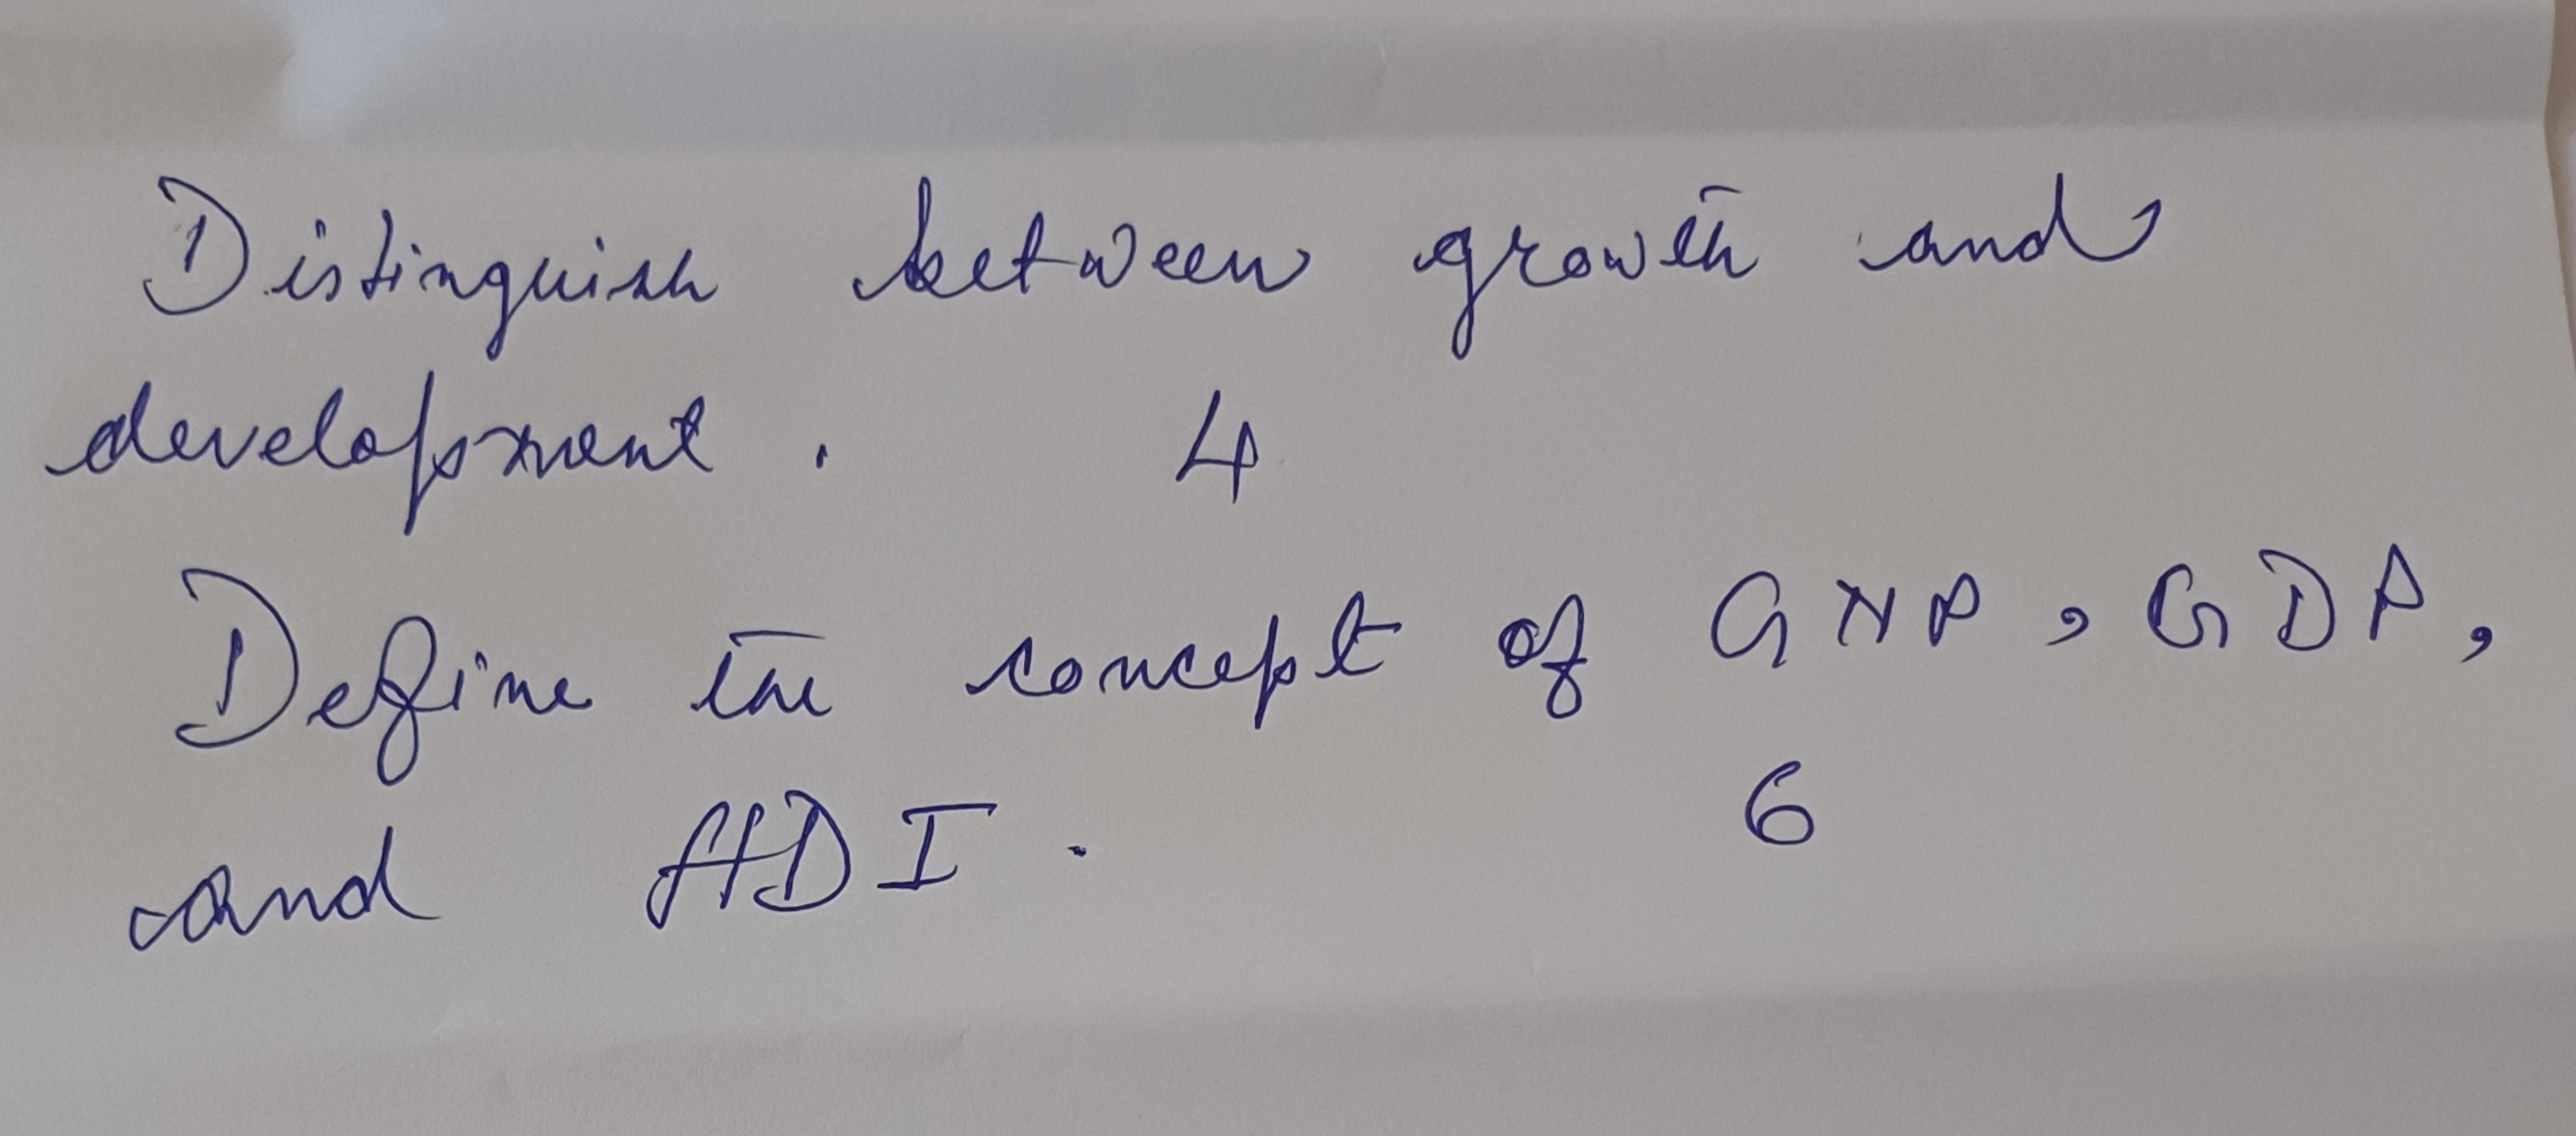 Distinguish between growth and
development. 4
Define the concept of GNP, GDP,
and HDI. 6